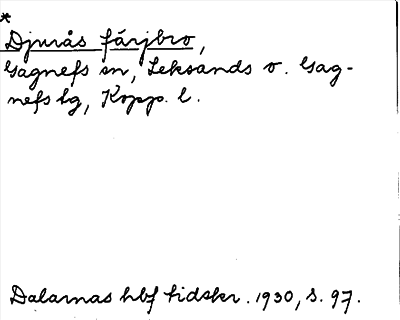 *
Djurås färjbro,
Gagnefs sn, Leksands o. Gag-
nefs tg, Kopp. l.
Dalarnas hbf tidskr. 1930, s. 97.